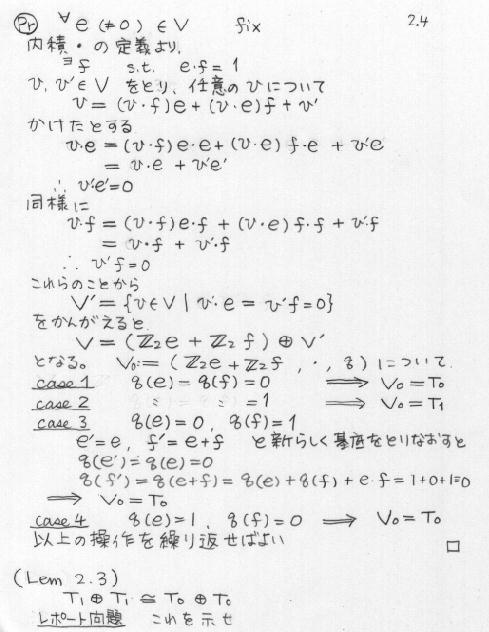 Pr ∀e (≠0) ∈ V fix 2.4
内積・の定義より,
∃f s.t. e・f = 1
v, v'∈ V をとり、任意の v について
v = (v・f)e + (v・e)f + v'
かけたとする
v・e = (v・f)e・e + (v・e)f・e + v'e
= v・e + v'e'
∴ v'e'=0
同様に
v・f = (v・f)e・f + (v・e)f・f + v'・f
= v・f + v'・f
∴ v'f=0
これらのことから
V' = {v∈V | v・e = v'f=0}
をかんがえると
V = (ℤ₂e + ℤ₂f) ⊕ V'
となる。 V₀:= (ℤ₂e + ℤ₂f, ・, q) について.
case 1 q(e) = q(f) = 0 ⟹ V₀ = T₀
case 2 = 1 ⟹ V₀ = T₁
case 3 q(e) = 0, q(f) = 1
e' = e, f' = e+f と新らしく基底をとりなおすと
q(e') = q(e) = 0
q(f') = q(e+f) = q(e) + q(f) + e・f = 1+0+1=0
⟹ V₀ = T₀
case 4 q(e) = 1, q(f) = 0 ⟹ V₀ = T₀
以上の操作を繰り返せばよい □
(Lem 2.3)
T₁ ⊕ T₁ ≅ T₀ ⊕ T₀
レポート問題 これを示せ